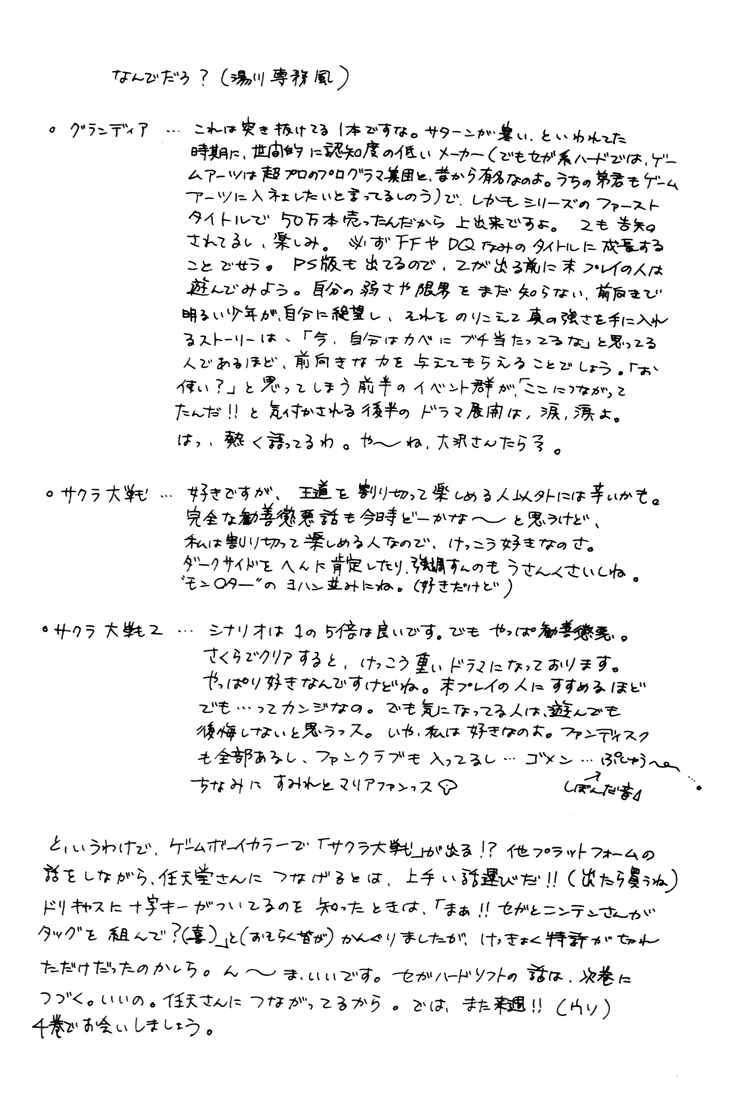 なんでだろ?(湯川専務風)
○ グランディア … これは突き抜けてる1本ですな。サターンが寒い、といわれてた
時期に、世間的に認知度の低いメーカー(でもセガ系ハードでは、ゲー
ムアーツは超プロのプログラマ集団と、昔から有名なのよ。うちの弟君もゲーム
アーツに入社したいと言ってるしのう)で、しかもシリーズのファースト
タイトルで50万本売ったんだから上出来ですよ。2も告知
されてるし、楽しみ。必ずFFやDQなみのタイトルに成長する
ことでせう。PS版も出てるので、2が出る前に未プレイの人は
遊んでみよう。自分の弱さや限界をまだ知らない、前向きで
明るい少年が、自分に絶望し、それをのりこえて真の強さを手に入れ
るストーリーは、「今、自分はカベにブチ当たってるな」と思ってる
人であるほど、前向きな力を与えてもらえることでしょう。「お
使い?」と思ってしまう前半のイベント群が、「ここにつながって
たんだ!!と気付かされる後半のドラマ展開は、涙、涙よ。
はっ、熱く語ってるわ。や〜ね、大沢さんたら。
○ サクラ大戦 … 好きですが、王道を割り切って楽しめる人以外には辛いかも。
完全な勧善懲悪話も今時どーかな〜と思うけど、
私は割り切って楽しめる人なので、けっこう好きなのさ。
ダークサイドをへんに肯定したり、強調すんのもうさんくさいしね。
"モン○ター"のヨハン並みにね。(好きだけど)
○ サクラ大戦2 … シナリオは1の5倍は良いです。でもやっぱ勧善懲悪。
さくらでクリアすると、けっこう重いドラマになっております。
やっぱり好きなんですけどね。未プレイの人にすすめるほど
でも…ってカンジなの。でも気になってる人は、遊んでも
後悔しないと思うっス。いや、私は好きなのよ。ファンディスク
も全部あるし、ファンクラブも入ってるし… ゴメン… ぷしゅう〜
ちなみにすみれとマリアファンっス♡ しぼんだ音
というわけで、ゲームボーイカラーで「サクラ大戦」が出る!?他プラットフォームの
話をしながら、任天堂さんにつなげるとは、上手い話選びだ!!(出たら買うね)
ドリキャスに十字キーがついてるのを知ったときは、「まぁ!!セガとニンテンさんが
タッグを組んで?(喜)」と(おそらく皆が)かんぐりましたが、けっきょく特許が切れ
ただけだったのかしら。ん〜ま、いいです。セガハードソフトの話は、次巻に
つづく。いいの。任天さんにつながってるから。では、また来週!!(ウソ)
4巻でお会いしましょう。